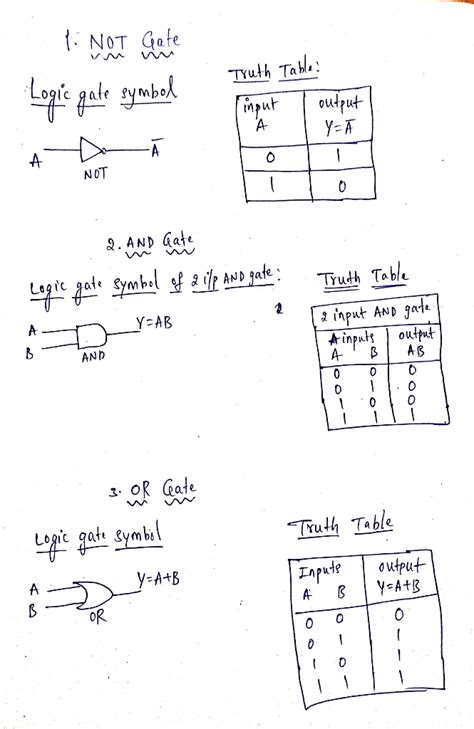 1. NOT Gate
Logic gate symbol
A
A̅
NOT
Truth Table:
input output
A Y=A̅
0 1
1 0
2. AND Gate
Logic gate symbol of 2 i/p AND gate:
A
B
Y=AB
AND
Truth Table
2 input AND gate
inputs output
A B AB
0 0 0
0 1 0
1 0 0
1 1 1
3. OR Gate
Logic gate symbol
A
B
Y=A+B
OR
Truth Table
Inputs output
A B Y=A+B
0 0 0
0 1 1
1 0 1
1 1 1